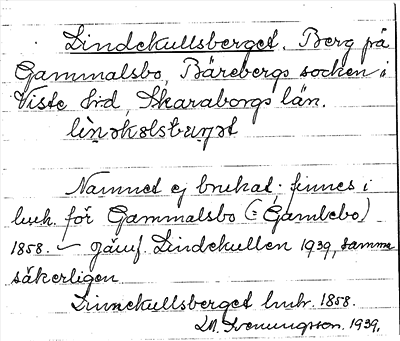 Lindekullsberget. Berg på
Gammalsbo, Bärebergs socken i
Viste hd, Skaraborgs län.
Namnet ej brukat; finnes i
luh. för Gammalsbo (= Gambebo)
1858. — Jämf. Lindekullen 1939, samma
säkerligen
Linnekullsberget luhr. 1858.
M. Svenungsson. 1939.